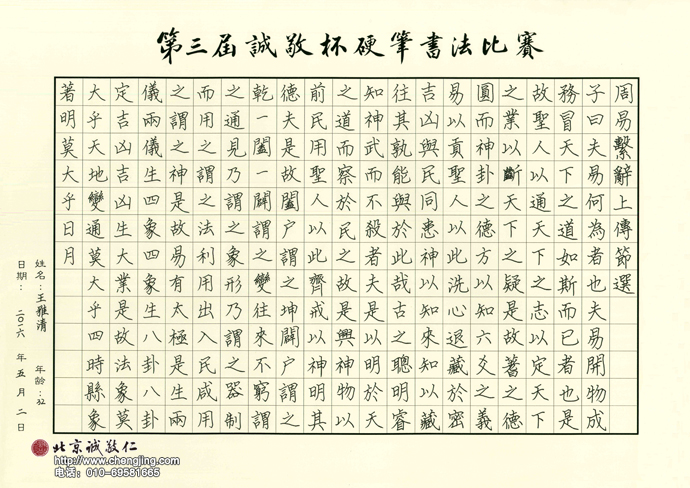 第三屆誠敬杯硬筆書法比賽
周易繫辭上傳節選
子曰夫易何為者也夫易開物成
務冒天下之道如斯而已者也是
故聖人以通天下之志以定天下
之業以斷天下之疑是故蓍之德
圓而神卦之德方以知六爻之義
易以貢聖人以此洗心退藏於密
吉凶與民同患神以知來知以藏
往其孰能與於此哉古之聰明睿
知神武而不殺者夫是以明於天
之道而察於民之故是興神物以
前民用聖人以此齊戒以神明其
德夫是故闔戶謂之坤闢戶謂之
乾一闔一闢謂之變往來不窮謂
之通見乃謂之象形乃謂之器制
而用之謂之法利用出入民咸用
之謂之神是故易有太極是生兩
儀兩儀生四象四象生八卦八卦
定吉凶吉凶生大業是故法象莫
大乎天地變通莫大乎四時縣象
著明莫大乎日月
姓名：王雅清 年龄：32
日期：二〇一六 年 五 月 二 日
北京诚敬仁
http://www.chengjing.com
电话：010-69561665